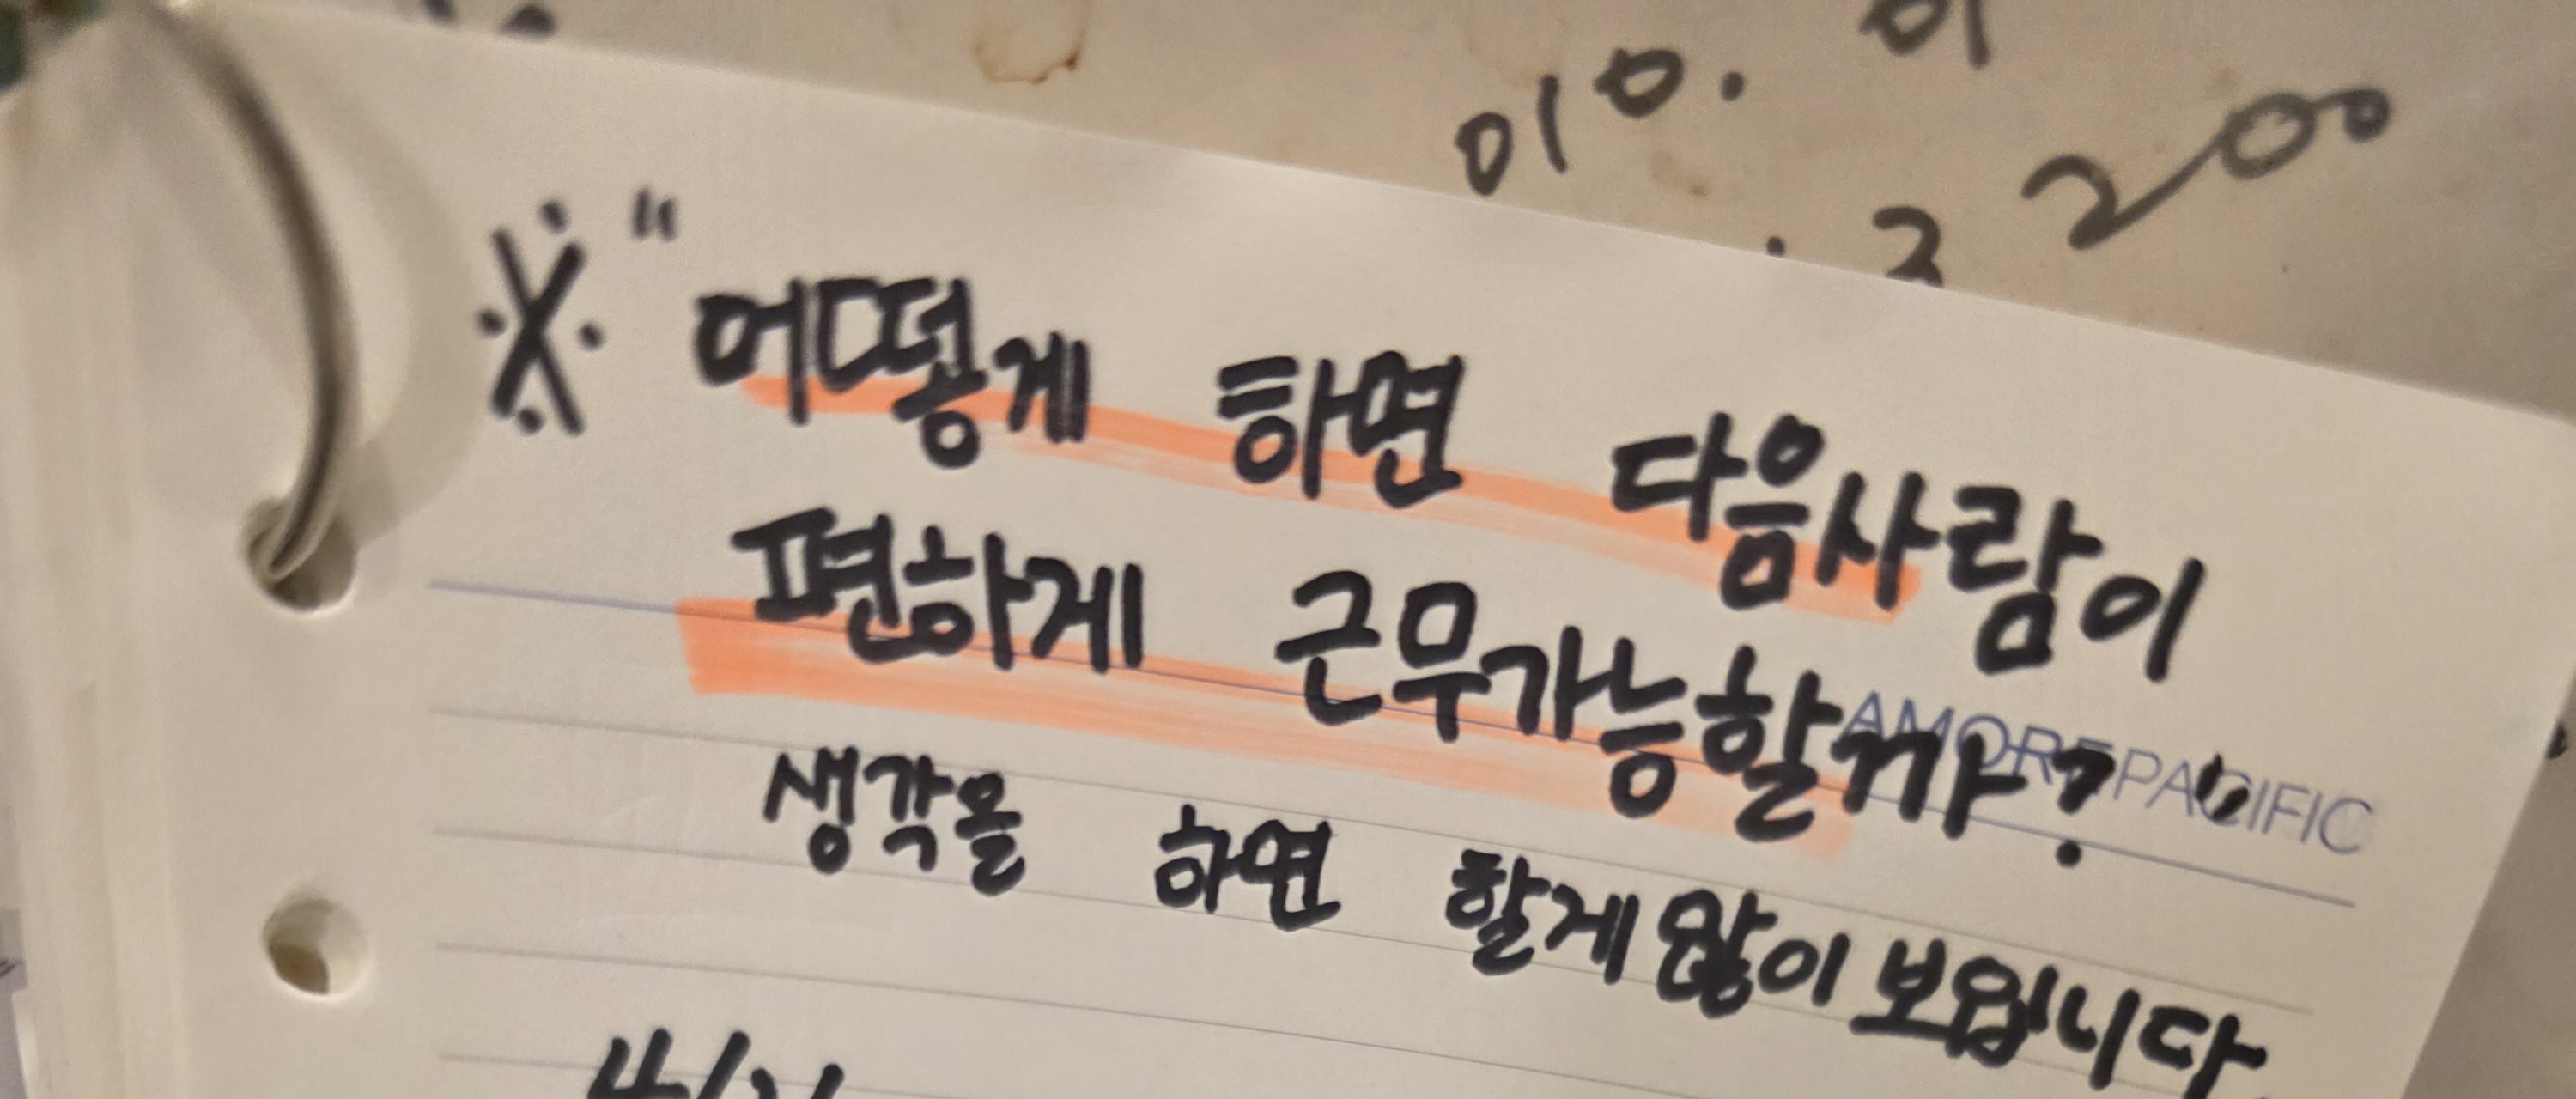 010.
200
※ "어떻게 하면 다음사람이
편하게 근무가능할까?"
AMOREPACIFIC
생각을 하면 할게 많이 보입니다.